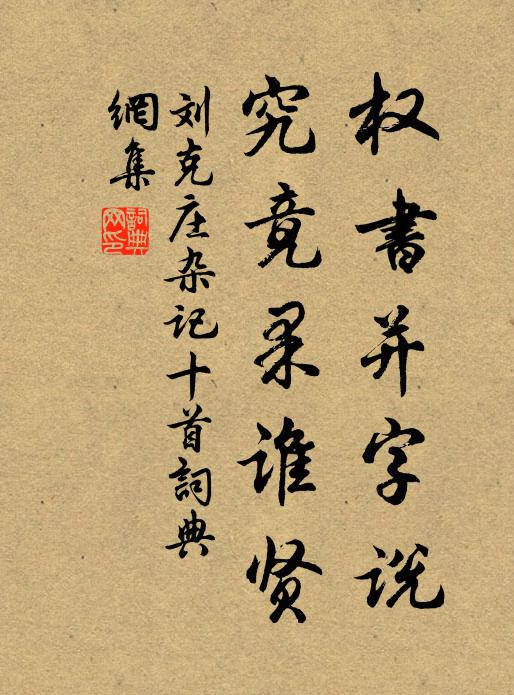 权書并字说
究竟果谁贤
刘克庄杂记十首詞典
網集
詞典
网印